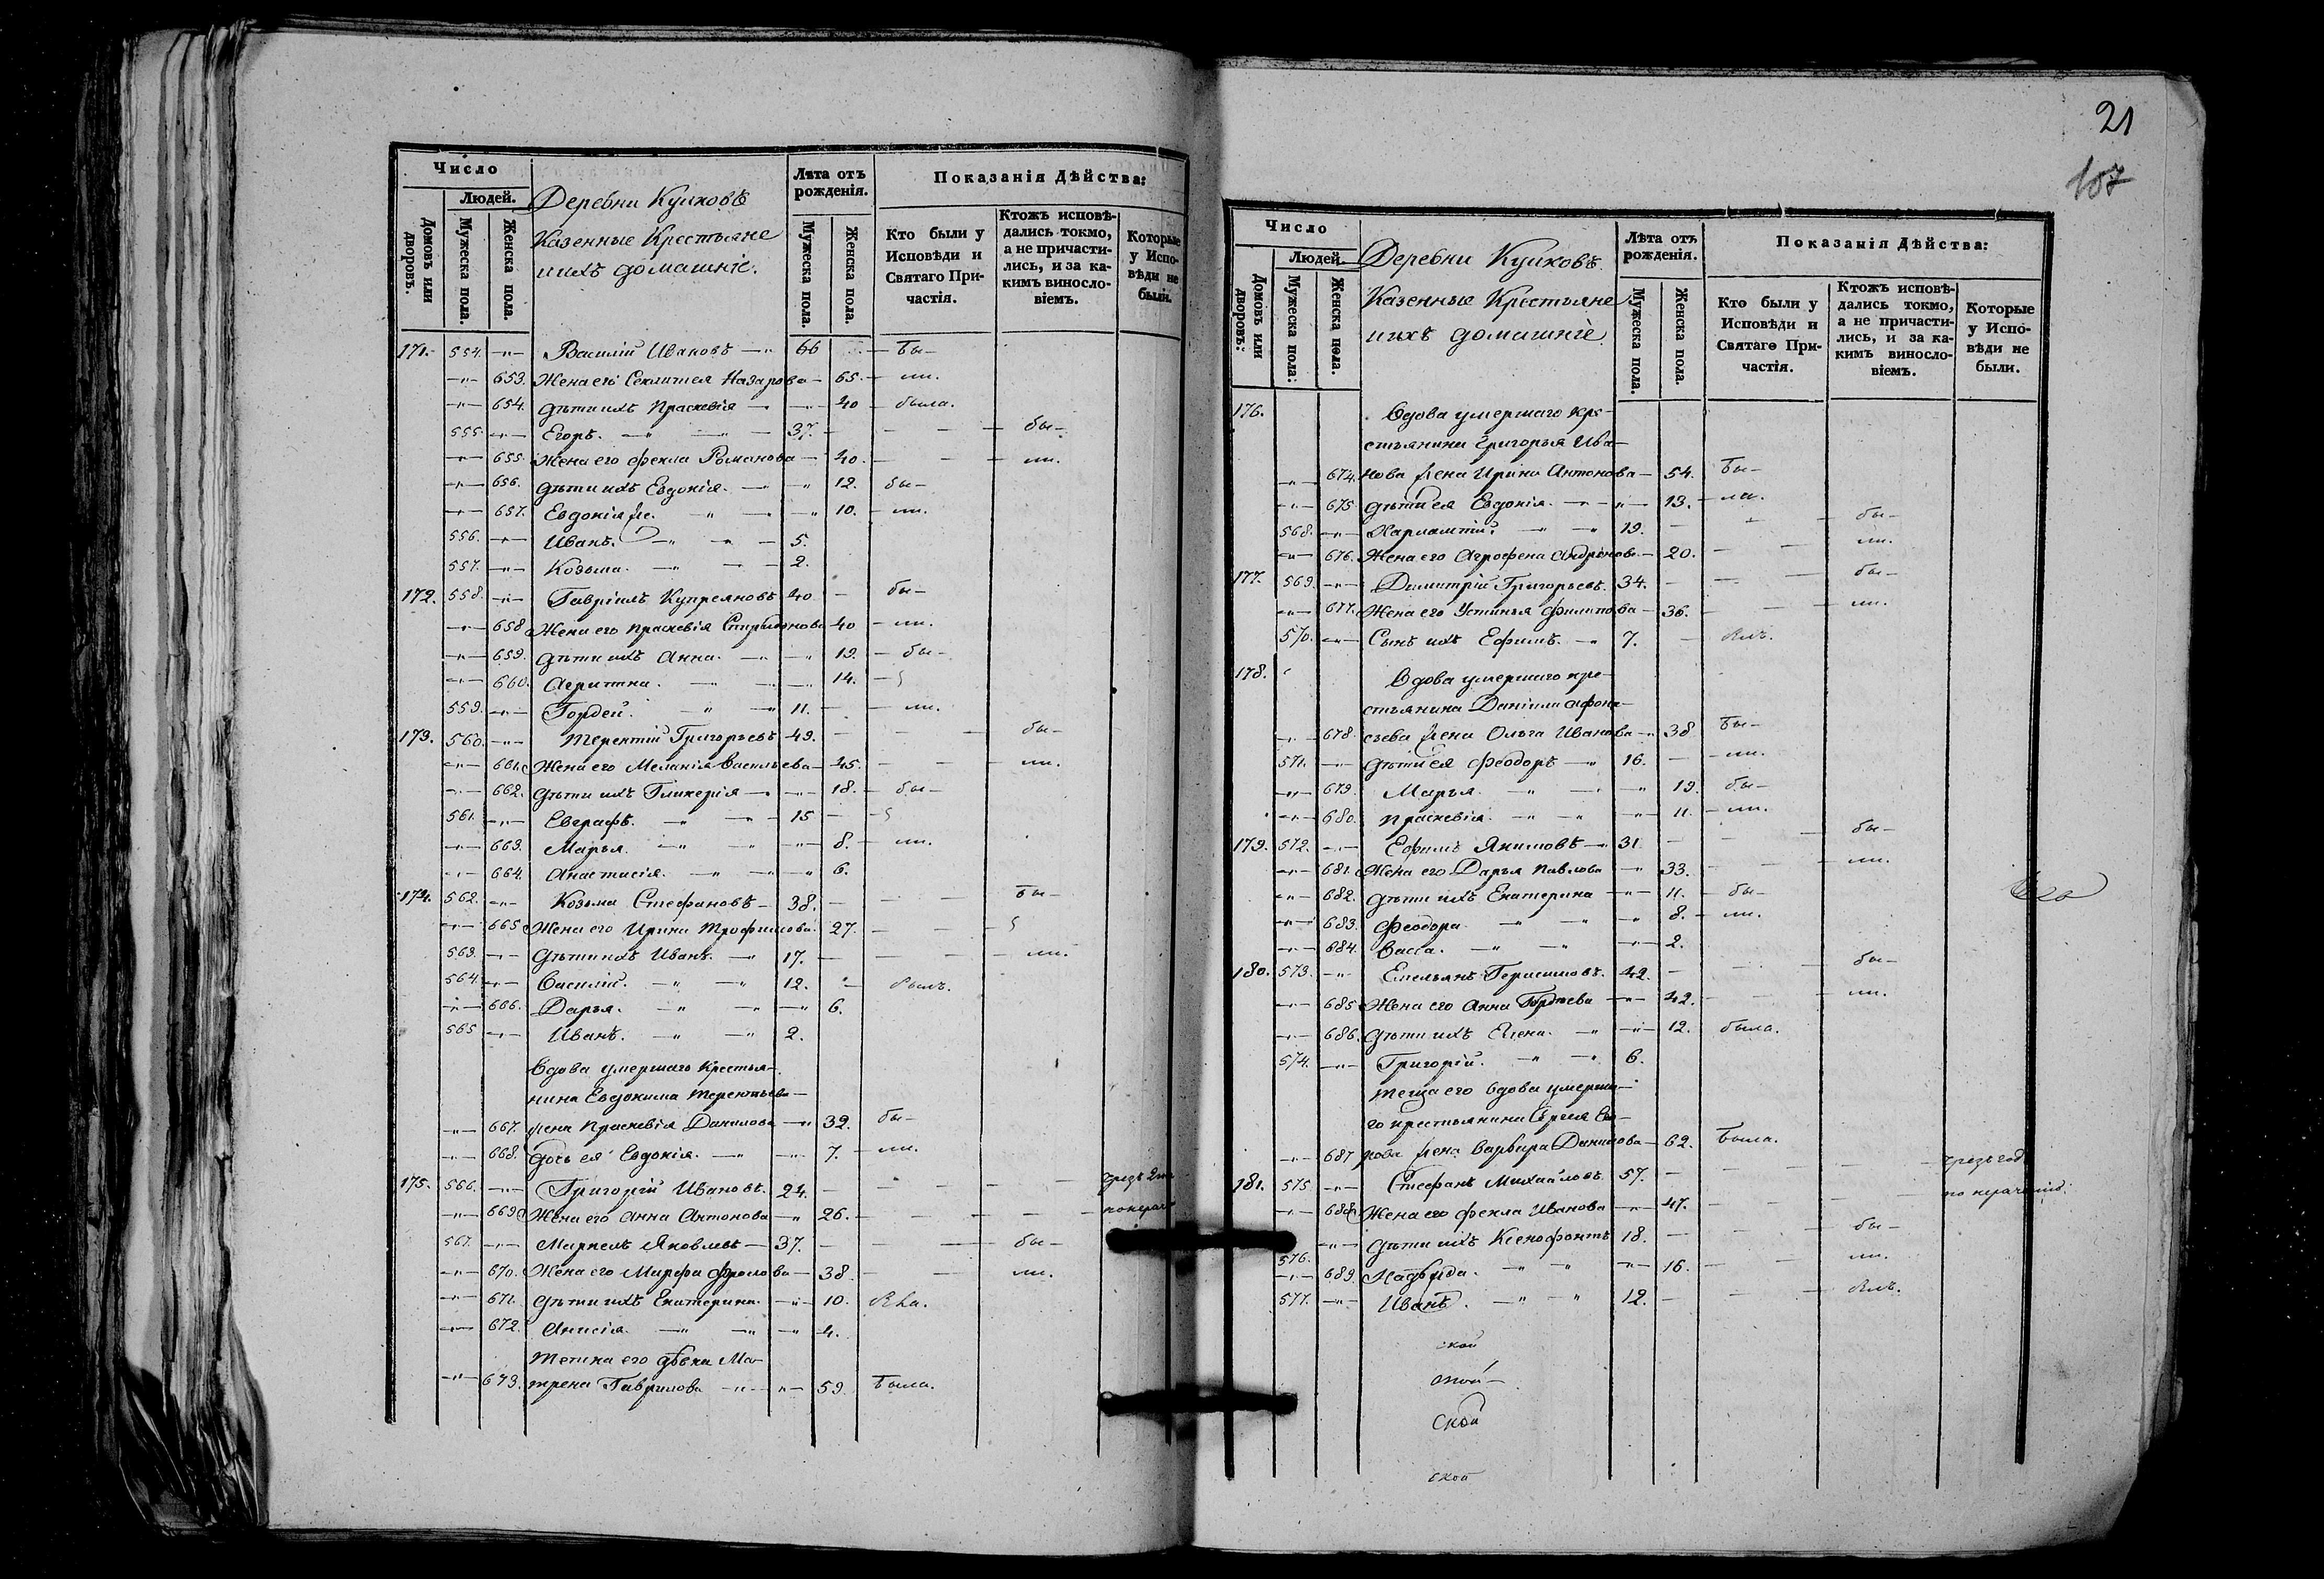 Число
Людей.
Домовъ или дворовъ.
Мужеска пола.
Женска пола.
Деревни Куиковѣ
Казенные Крестьяне
и ихъ домашніе.
Лѣта отъ рожденія.
Мужеска пола.
Женска пола.
Показанія Дѣйства:
Кто были у Исповѣди и Святаго Причастія.
Ктожъ исповѣдались токмо, а не причастились, и за какимъ винословіемъ.
Которые у Исповѣди не были.
171. 554. -"- Василій Ивановъ -" 66 - бы-
-"- 653. Жена его Секлитея Назарова - 65. - ли.
-"- 654. дѣти ихъ Праскевія - -"- 40 - была.
555. -"- Егоръ. -" -"- 37. - - - бы-
-"- 655. Жена его Фекла Романова - 40. - - ли.
-"- 656. дѣти ихъ Евдокія. - " 12. бы-
-"- 657. Евдокія же. " - -" 10. - ли.
556. -"- Иванъ. -" " - 5.
557. -"- Козьма. -" - - 2.
172. 558. -"- Гавріилъ Купреяновъ 40 - бы-
-"- 658 Жена его Праскевія Спиридонова 40 - ли.
-"- 659. дѣти ихъ Анна. -" -" 19. - бы-
-"- 660. Агрипина. -" - 14. -
559. -"- Гордей. " -" 11. - - ли.
173. 560. -"- Терентій Григорьевъ 49. - - - бы-
-"- 661. Жена его Меланія Васильева - 45. - - ли.
-"- 662. дѣти ихъ Гликерія - -" 18. - бы-
561. -"- Евграфъ. -" -" - 15 -
-"- 663. Марья. -" -" -" 8. - ли.
-"- 664. Анастасія. -" -" " 6.
174. 562. -"- Козьма Стефановъ - 38. - - - бы-
-"- 665 Жена его Ирина Трофимова. 27. - - -
563. -"- дѣти ихъ Иванъ. -" 17. - - - ли.
564. -"- Василій. -" -" 12. - былъ.
-"- 666. Дарья. -" -" -" 6.
565 -"- Иванъ. -" -" 2.
Вдова умершаго Крестья-
нина Евдокима Терентьева-
-"- 667. жена Праскевія Данилова -" 32. бы-
-"- 668. дочь ея Евдокія. -" -" 7. - ли.
175. 566. -"- Григорій Ивановъ. 24. - - - -
-"- 669 Жена его Анна Антонова -" 26. - - - -
567. -"- Маркелъ Яковлевъ - 37. - - - бы-
-"- 670. Жена его Марфа Фролова - 38. - - ли.
-"- 671. дѣти ихъ Екатерина. -" 10.
-"- 672. Анисія. -" -" " 4.
Тетка его дѣвка Ма-
-"- 673. трена Гаврилова -" -" 59. была.
21
107
Число
Людей.
Домовъ или дворовъ:
Мужеска пола:
Женска пола.
Деревни Куиковѣ.
Казенные Крестьяне
и ихъ домашніе
Лѣта отъ рожденія.
Мужеска пола.
Женска пола.
Показанія Дѣйства:
Кто были у Исповѣди и Святаго Причастія.
Ктожъ исповѣдались токмо, а не причастились, и за какимъ винословіемъ.
Которые у Исповѣди не были.
176. Вдова умершаго кре-
стьянина Григорья Ива-
-"- 674. нова жена Ирина Антонова - 54. бы-
-"- 675. дѣти ея Евдокія. -" " 13. - ла.
568. -"- Харлампій. -" " 19. - - - бы-
-"- 676. Жена его Агрофена Андронова - 20. - - ли.
177. 569. -"- Димитрій Григорьевъ. 34. - - - бы-
-"- 677. Жена его Устинья Филипова - 36. - - ли.
570. -"- Сынъ ихъ Ефимъ. -" 7. -
178. Вдова умершаго кре-
стьянина Даніила Афона-
-"- 678. сьева жена Ольга Иванова -" 38 бы-
571. -"- дѣти ея Феодоръ -" 16. - - ли.
-"- 679. Марья. -" - " 19. бы-
-"- 680. Праскевія. -" " -" 11. - ли.
179. 572. -"- Ефимъ Якимовъ -" 31. - - - бы-
-"- 681. Жена его Дарья Павлова -" 33. - - ли.
-"- 682. дѣти ихъ Екатерина -" 11. - бы-
-"- 683. Феодора. -" -" " 8. - ли.
-"- 684. Васса. -" -" -" 2.
180. 573. -"- Емельянъ Герасимовъ. 42. - - - бы-
-"- 685 Жена его Анна Гордѣева -" 42. - - ли.
-"- 686. дѣти ихъ Елена. -" -" 12. была.
574. -"- Григорій. -" -" 6.
Теща его вдова умерша-
го крестьянина Сергея Ево-
-"- 687 рова жена Варвара Данилова - 62. была.
181. 575 -"- Стефанъ Михайловъ. 57. - - - -
-"- 688 Жена его Фекла Иванова -" 47. - - - по нераченію.
576. -"- дѣти ихъ Ксенофонтъ 18. - - - бы-
-"- 689. Надежда. -" " -" 16. - - ли.
577. -"- Иванъ. -" " 12. - - -
ской
ской